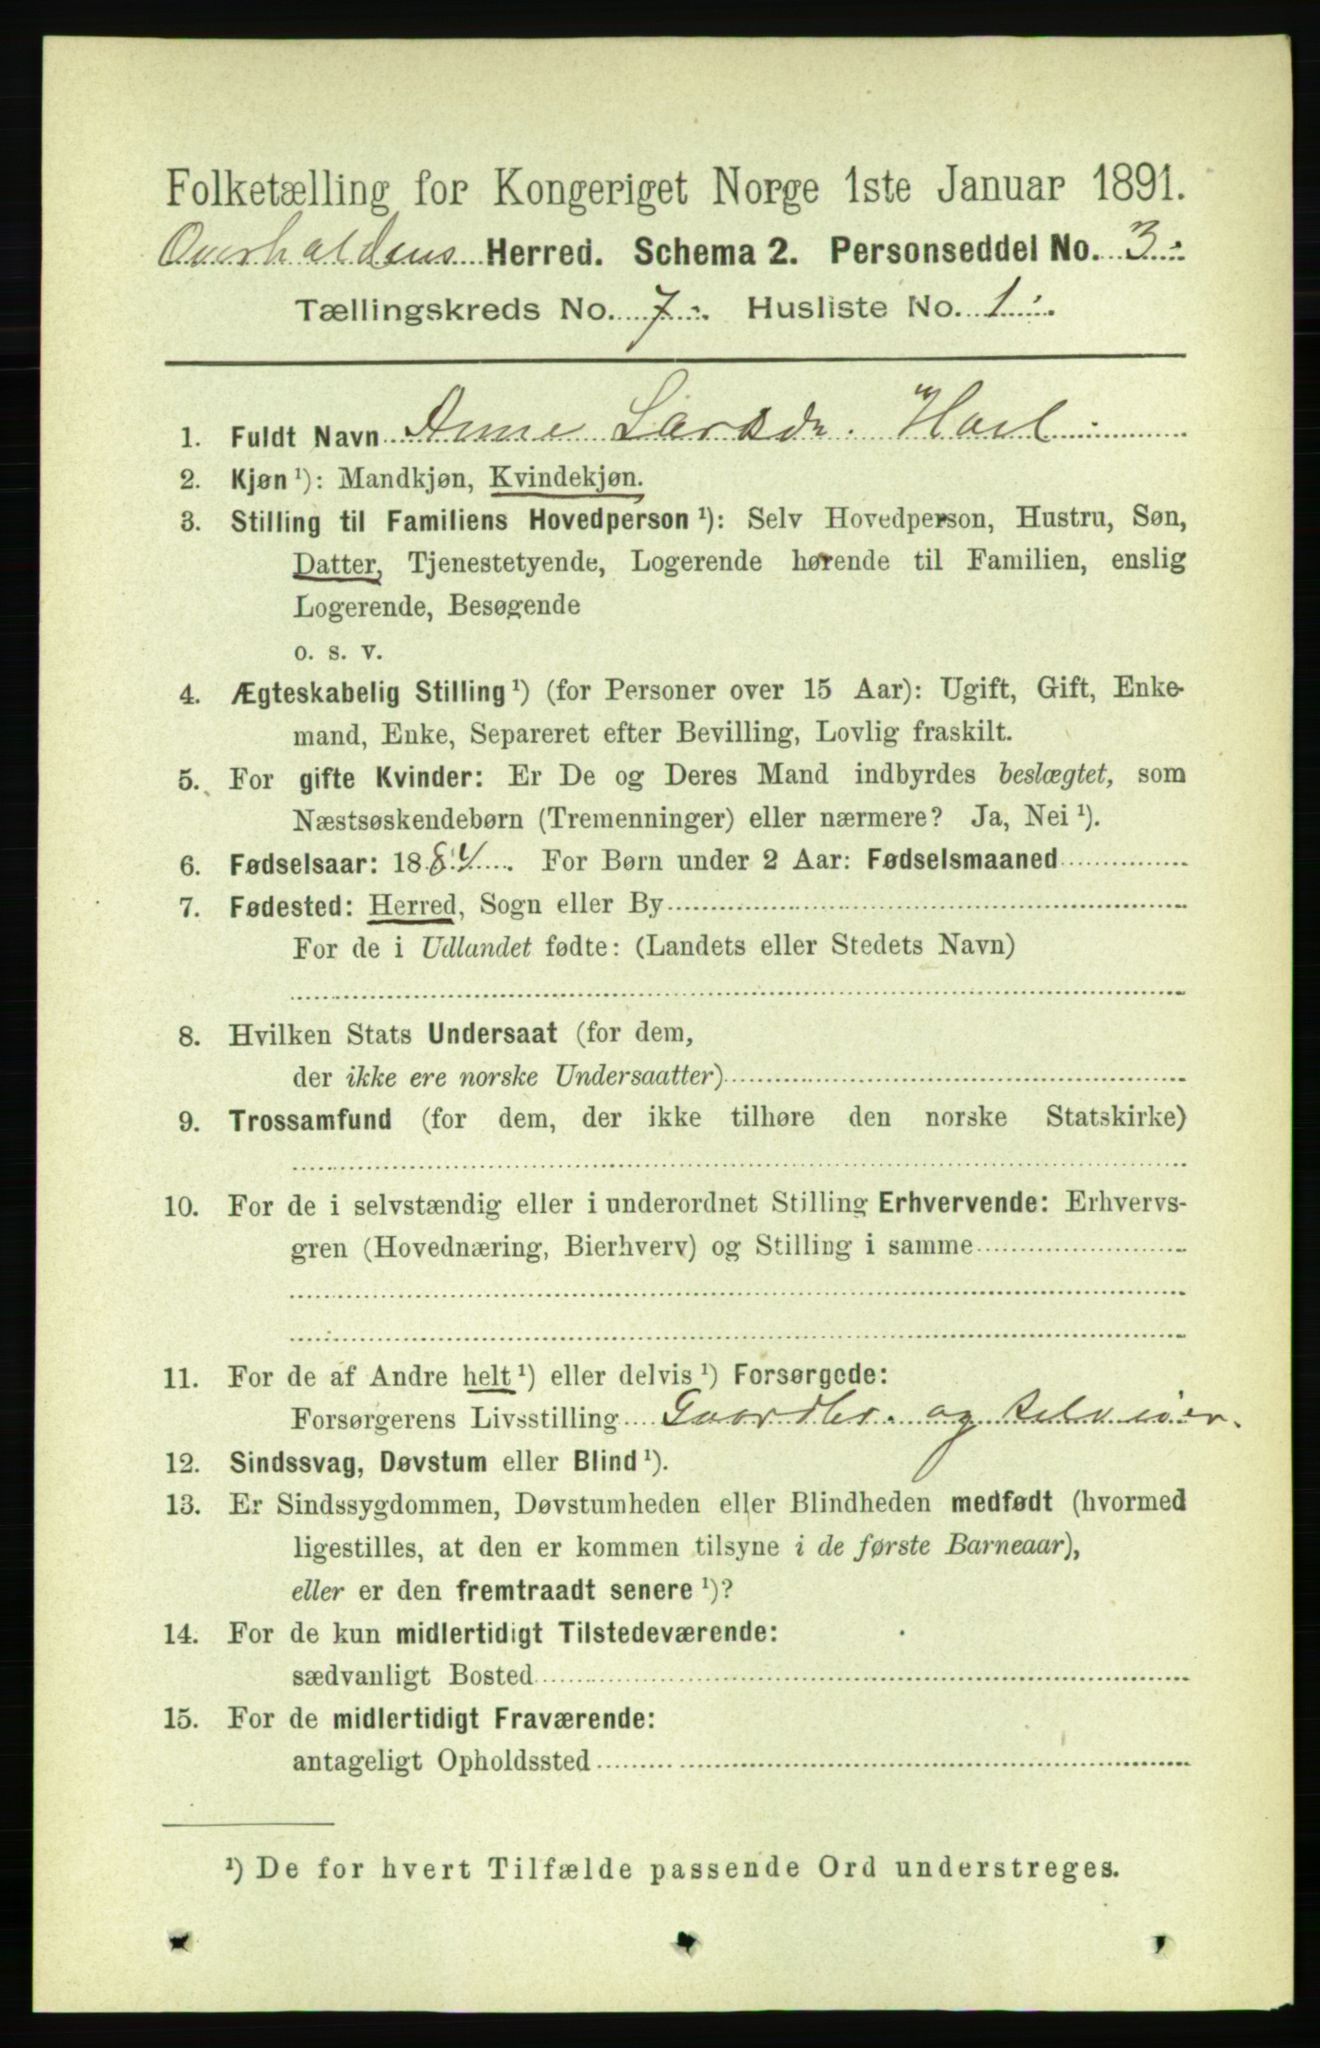 Folketælling for Kongeriget Norge 1ste Januar 1891.
Overhaldens Herred. Schema 2. Personseddel No. 3
Tællingskreds No. 7 Husliste No. 1
1. Fuldt Navn Anne Larsdr.
2. Kjøn ¹): Mandkjøn, Kvindekjøn.
3. Stilling til Familiens Hovedperson ¹): Selv Hovedperson, Hustru, Søn,
Datter, Tjenestetyende, Logerende hørende til Familien, enslig
Logerende, Besøgende
o. s. v.
4. Ægteskabelig Stilling ¹) (for Personer over 15 Aar): Ugift, Gift, Enke-
mand, Enke, Separeret efter Bevilling, Lovlig fraskilt.
5. For gifte Kvinder: Er De og Deres Mand indbyrdes beslægtet, som
Næstsøskendebørn (Tremenninger) eller nærmere? Ja, Nei ¹).
6. Fødselsaar: 1884. For Børn under 2 Aar: Fødselsmaaned
7. Fødested: Herred, Sogn eller By
For de i Udlandet fødte: (Landets eller Stedets Navn)
8. Hvilken Stats Undersaat (for dem,
der ikke ere norske Undersaatter)
9. Trossamfund (for dem, der ikke tilhøre den norske Statskirke)
10. For de i selvstændig eller i underordnet Stilling Erhvervende: Erhvervs-
gren (Hovednæring, Bierhverv) og Stilling i samme
11. For de af Andre helt ¹) eller delvis ¹) Forsørgede:
Forsørgerens Livsstilling Gaardbr. og selveier.
12. Sindssvag, Døvstum eller Blind ¹).
13. Er Sindssygdommen, Døvstumheden eller Blindheden medfødt (hvormed
ligestilles, at den er kommen tilsyne i de første Barneaar),
eller er den fremtraadt senere ¹)?
14. For de kun midlertidigt Tilstedeværende:
sædvanligt Bosted
15. For de midlertidigt Fraværende:
antageligt Opholdssted
¹) De for hvert Tilfælde passende Ord understreges.